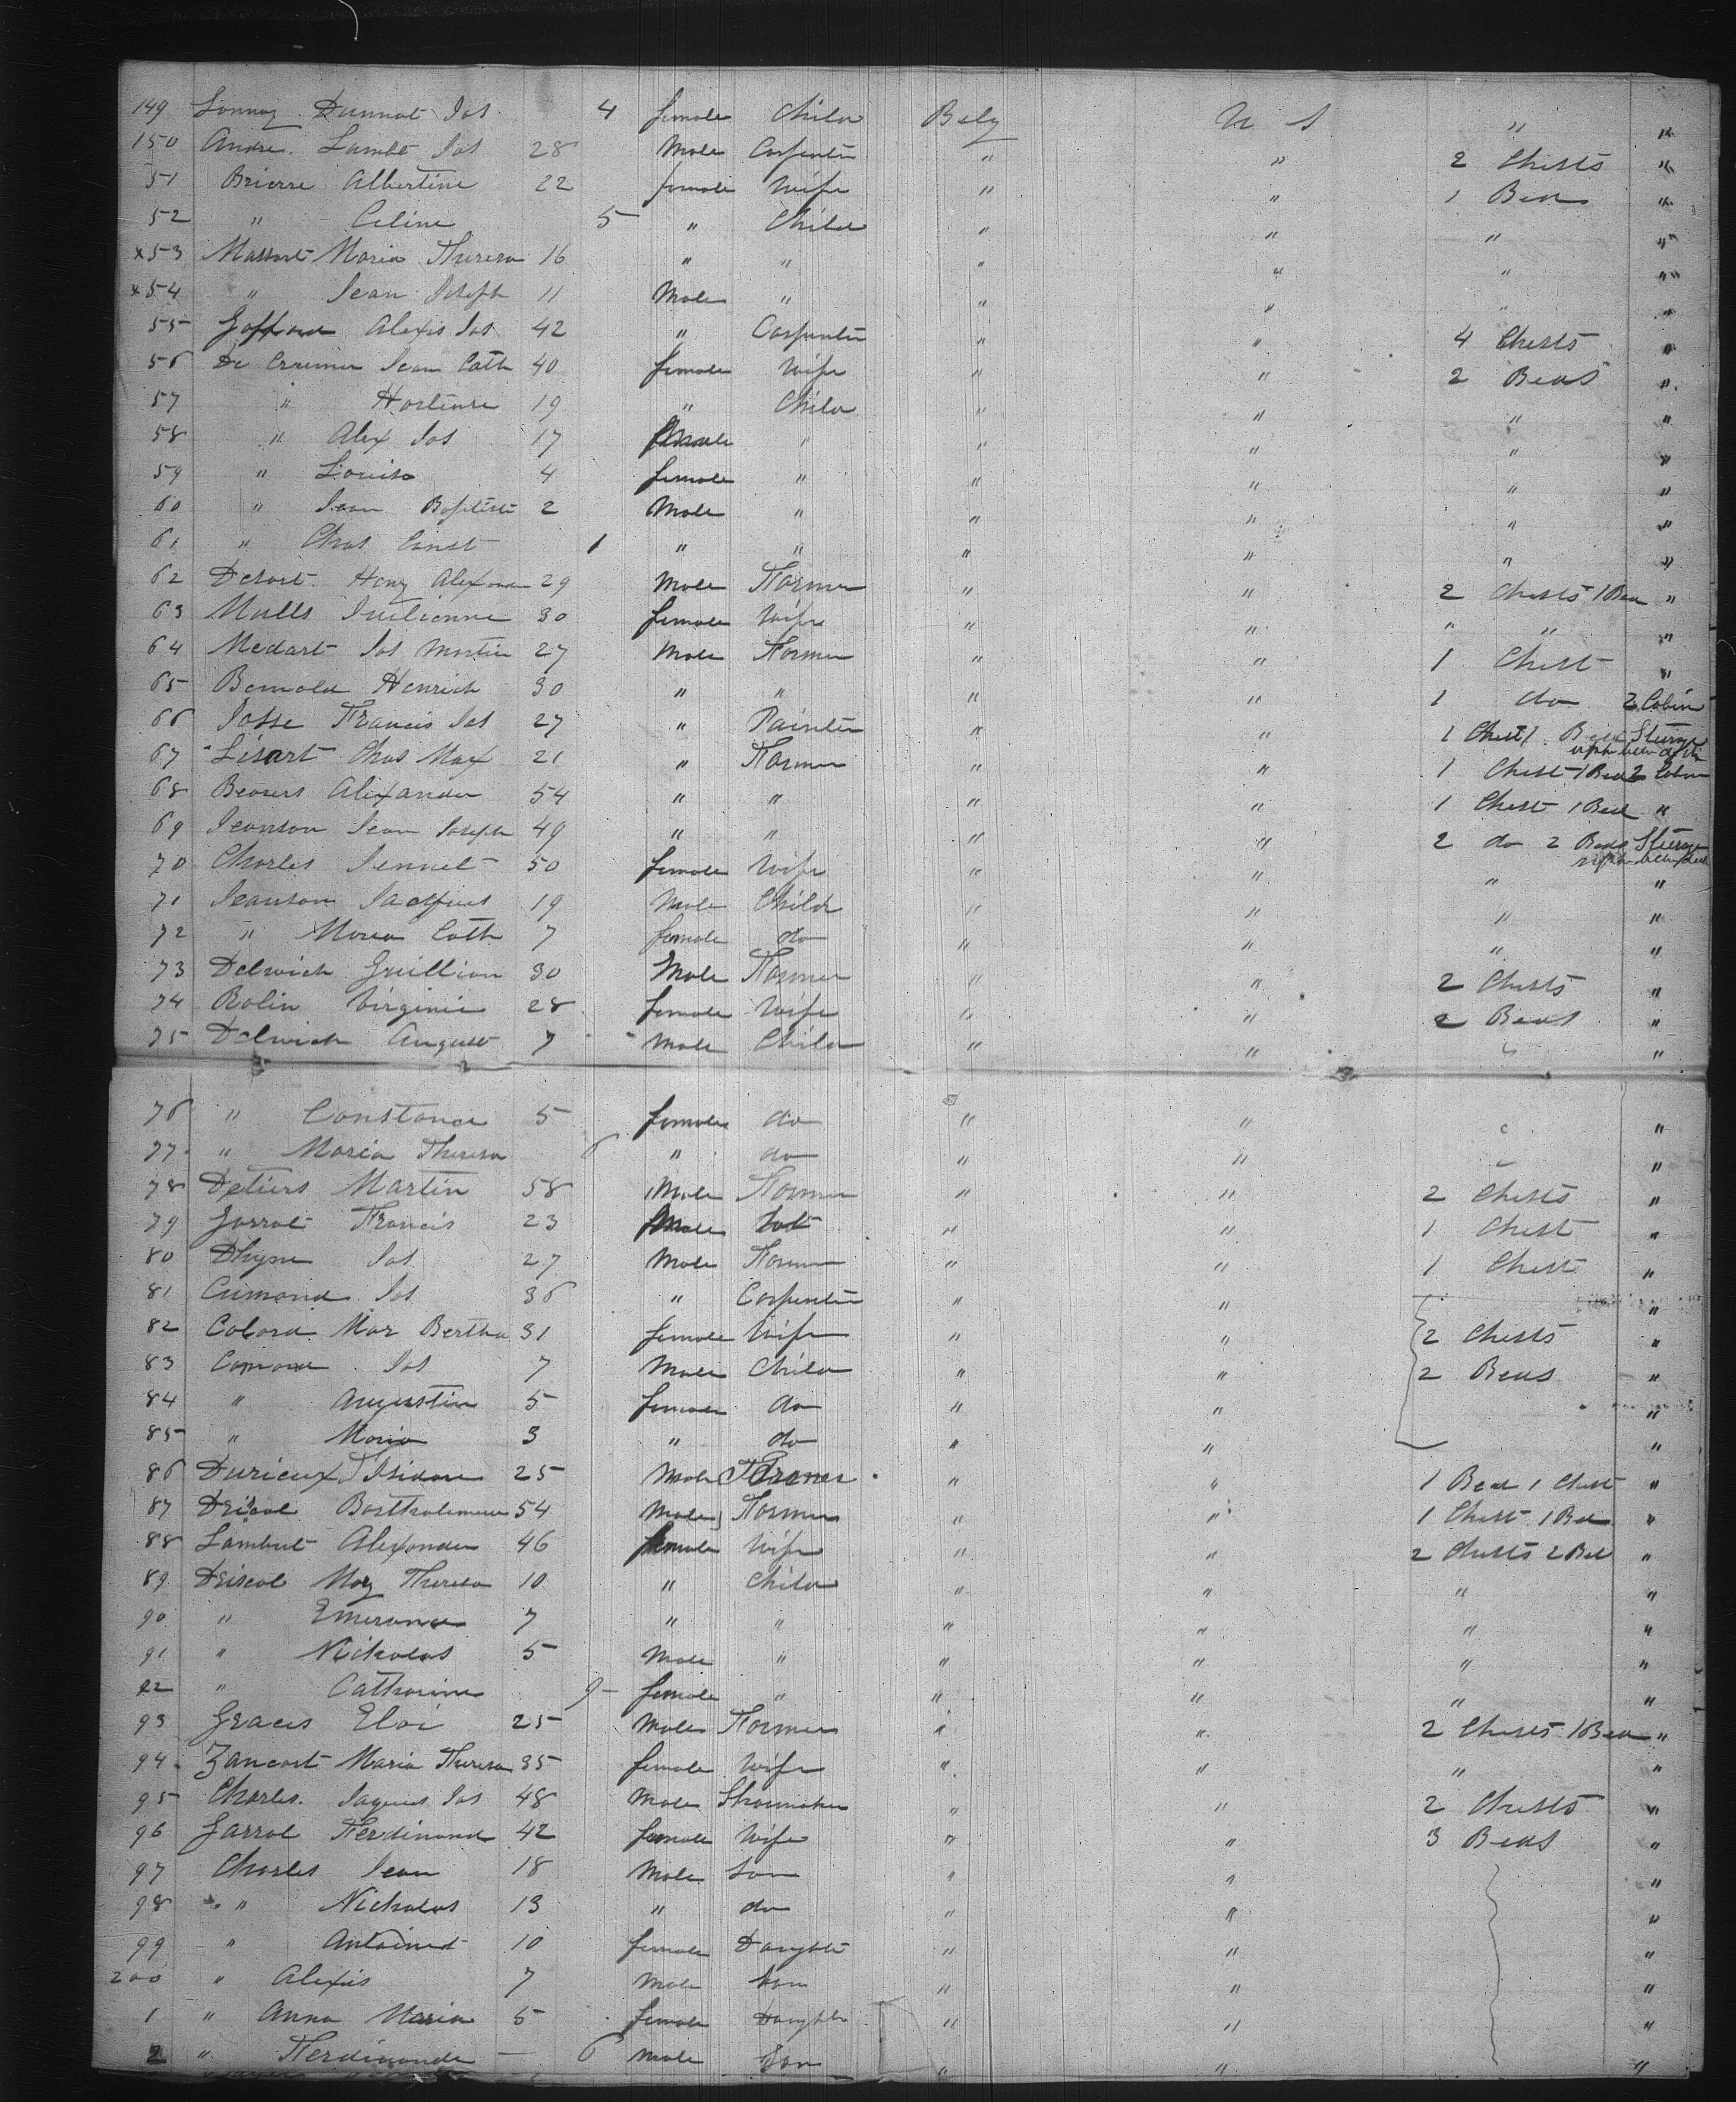 149 Lonnoy Dunnot Jos 4 female Child Belg U S " "
150 Andre Lambt Jos 28 Male Carpenter " " 2 Chests "
51 Brierre Albertine 22 female Wife " " 1 Bed "
52 " Celine 5 " Child " " " "
x53 Massart Maria Theresa 16 " " " " " "
x54 " Jean Joseph 11 Male " " " " "
55 Goffard Alexis Jos 42 " Carpenter " " 4 Chests "
56 De Cremer Jean Cath 40 female Wife " " 2 Beds "
57 " Hortense 19 " Child " " " "
58 " Alex Jos 17 Male " " " " "
59 " Louisa 4 female " " " " "
60 " Jean Baptiste 2 Male " " " " "
61 " Chas Const 1 " " " " " "
62 Detort Henry Alexander 29 Male Farmer " " 2 Chests 1 Bed "
63 Mulls Julienne 30 female Wife " " " " "
64 Medart Jos Martin 27 Male Farmer " " 1 Chest "
65 Bemold Henrich 30 " " " " 1 do 2 Cabin
66 Josse Francis Jos 27 " Painter " " 1 Chest 1 Bed Sterage
upper between deck aft
67 Lisart Chas Max 21 " Farmer " " 1 Chest 1 Bed 2 Cabin
68 Beavers Alexander 54 " " " " 1 Chest 1 Bed "
69 Jeanson Jean Joseph 49 " " " " 2 do 2 Beds Sterage
upper between deck
70 Charles Jennet 50 female Wife " " " "
71 Jeanson Jacques 19 Male Child " " " "
72 " Maria Cath 7 female do " " " "
73 Delwich Guillion 30 Male Farmer " " 2 Chests "
74 Rolin Virginie 28 female Wife " " 2 Beds "
75 Delwich August 7 Male Child " " " "
76 " Constance 5 female do " " "
77 " Maria Theresa 6 " do " " "
78 Detiers Martin 58 Male Farmer " " 2 Chests "
79 Jarrot Francis 23 Male " " 1 Chest "
80 Dhyne Jos 27 Male Farmer " " 1 Chest "
81 Cumond Jos 36 " Carpenter " " "
82 Colard Mar Bertha 31 female Wife " " 2 Chests "
83 Comond Jos 7 Male Child " " 2 Beds "
84 " Augustine 5 female do " " "
85 " Maria 3 " do " " "
86 Durieux Isidore 25 Male Farmer " " 1 Bed 1 Chest "
87 Driscol Bartholemew 54 Male Farmer " " 1 Chest 1 Bed "
88 Lambert Alexander 46 female Wife " " 2 Chests 2 Bed "
89 Driscol Mary Theresa 10 " Child " " " "
90 " Emerance 7 " " " " " "
91 " Nickolas 5 Male " " " " "
92 " Catharine 9 female " " " " "
93 Graces Eloi 25 Male Farmer " " 2 Chests 1 Bed "
94 Zancart Maria Theresa 35 female Wife " " " "
95 Charles Jaques Jos 48 Male Shoemaker " " 2 Chests "
96 Jarrol Ferdinand 42 female Wife " " 3 Beds "
97 Charles Jean 18 Male Son " " "
98 " Nickolas 13 " do " " "
99 " Antoinet 10 female Daughter " " "
200 " Alexis 7 Male Son " " "
1 " Anna Maria 5 female Daughter " " "
2 " Ferdinande 6 Male Son " " "